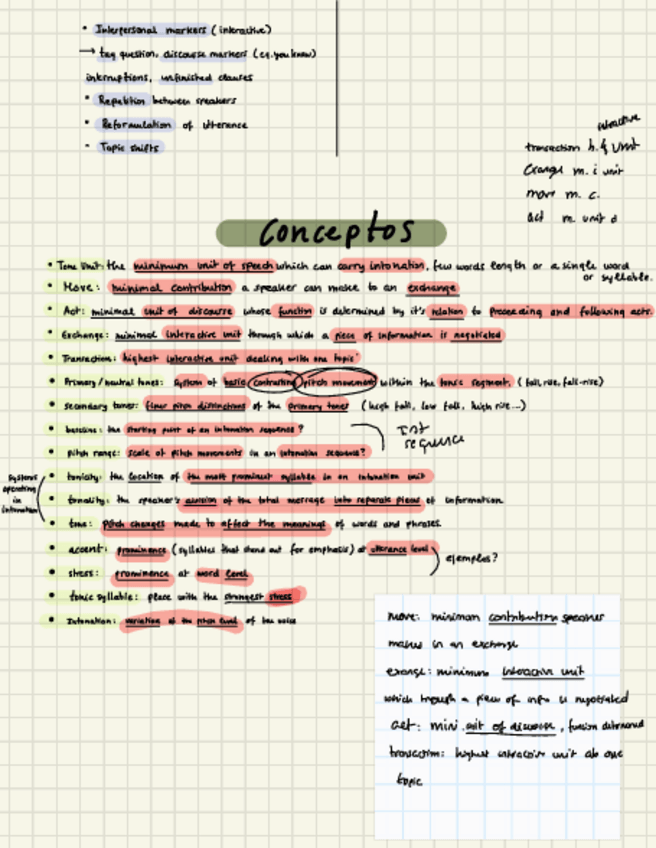 • Interpersonal markers (interactive)
→ tag question, discourse markers (eg. you know)
interruptions, unfinished clauses
• Repetition between speakers
• Reformulation of utterance
• Topic shifts
interactive
transaction h. unit
Exange m. i unit
move m. c.
act m. unit d
Conceptos
• Tone unit: the minimum unit of speech which can carry intonation, few words length or a single word
or syllable.
• Move: minimal contribution a speaker can make to an exchange
• Act: minimal unit of discourse whose function is determined by it's relation to preceeding and following acts.
• Exchange: minimal interactive unit through which a piece of information is negotiated
• Transaction: highest interactive unit dealing with one topic
• Primary/neutral tones: system of basic contrasting pitch movement within the tonic segment, (fall, rise, fall-rise)
• secondary tones: finer pitch distinctions of the primary tones (high fall, low fall, high rise...)
• baseline: the starting point of an intonation sequence?
Int
sequence
• pitch range: scale of pitch movements in an intonation sequence?
systems
operating
in
intonation
• tonicity: the location of the most prominent syllable in an intonation unit
• tonality: the speaker's division of the total message into separate pieces of information
• tone: pitch changes made to affect the meanings of words and phrases.
• accent: prominence (syllables that stand out for emphasis) at utterance level
ejemplos?
• stress: prominence at word level
• tonic syllable: place with the strongest stress
• Intonation: variation of the pitch level of the voice
move: miniman contribution speaker
makes in an exchange
exange: minimum interactive unit
which trough a piece of info is negotiated
act: mini unit of discourse, funsion
transaction: highest unit ab one
topic